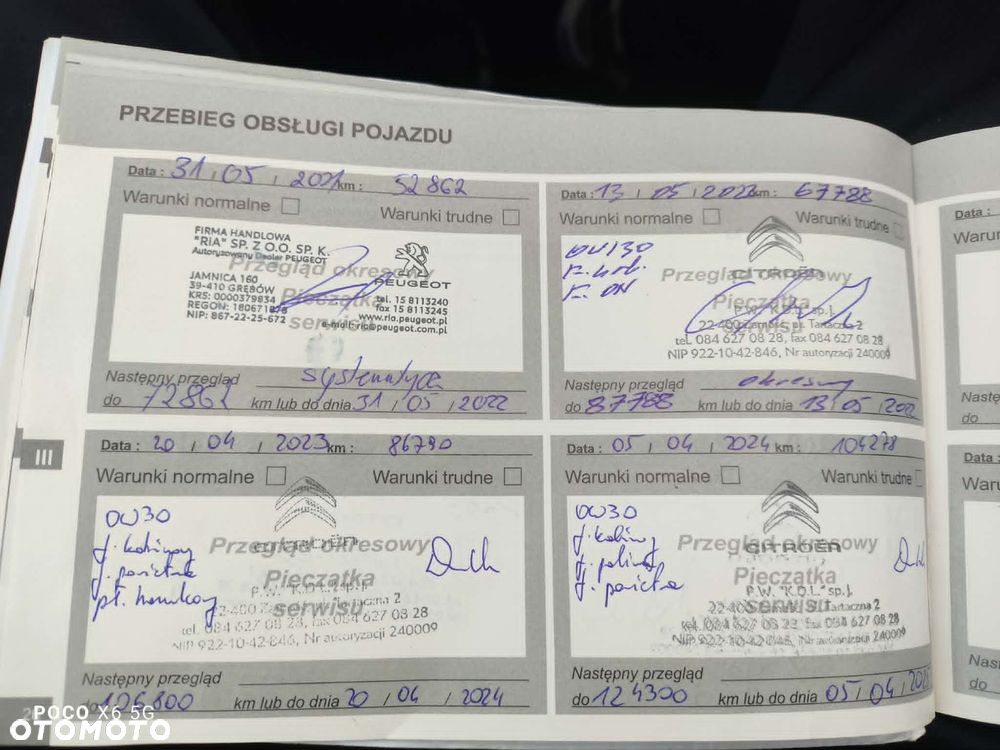 PRZEBIEG OBSŁUGI POJAZDU
Data : 31 / 05 / 2021 km : 52862
Warunki normalne
Warunki trudne
FIRMA HANDLOWA
"RIA" SP. Z O.O. SP. K.
Autoryzowany Dealer PEUGEOT
JAMNICA 160
39-410 GRĘBÓW
KRS: 0000379834
REGON: 180671878
NIP: 867-22-25-672
PEUGEOT
tel. 15 8113240
fax 15 8113245
www.ria.peugeot.pl
e-mail: ria@peugeot.com.pl
Przegląd okresowy
Pieczątka
serwisu
Następny przegląd systematyczny
do 72862 km lub do dnia 31 / 05 / 2022
Data : 13 / 05 / 2022 km : 67788
Warunki normalne
Warunki trudne
0W30
CITROËN
Przegląd okresowy
Pieczątka
serwisu
P.W. "K.D.L." sp.j.
22-400 Zamość, ul. Tartaczna 2
tel. 084 627 08 28, fax 084 627 08 28
NIP 922-10-42-846, Nr autoryzacji 240009
Następny przegląd okresowy
do 87788 km lub do dnia 13 / 05 /
III
Data : 20 / 04 / 2023 km : 86790
Warunki normalne
Warunki trudne
0W30
f. kabinowy
f. powietrza
pł. hamulcowy
CITROËN
Przegląd okresowy
Pieczątka
serwisu
P.W. "K.D.L." sp.j.
22-400 Zamość, ul. Tartaczna 2
tel. 084 627 08 28, fax 084 627 08 28
NIP 922-10-42-846, Nr autoryzacji 240009
Następny przegląd
do 106800 km lub do dnia 20 / 04 / 2024
Data : 05 / 04 / 2024 km : 104278
Warunki normalne
Warunki trudne
0W30
f. kabiny
f. paliwa
f. powietrza
CITROËN
Przegląd okresowy
Pieczątka
serwisu
P.W. "K.D.L." sp.j.
22-400 Zamość, ul. Tartaczna 2
tel. 084 627 08 28, fax 084 627 08 28
NIP 922-10-42-846, Nr autoryzacji 240009
Następny przegląd
do 124300 km lub do dnia 05 / 04 /
Data :
Waru
Nast
do
Data :
Waru
Nast
do
POCO X6 5G
OTOMOTO